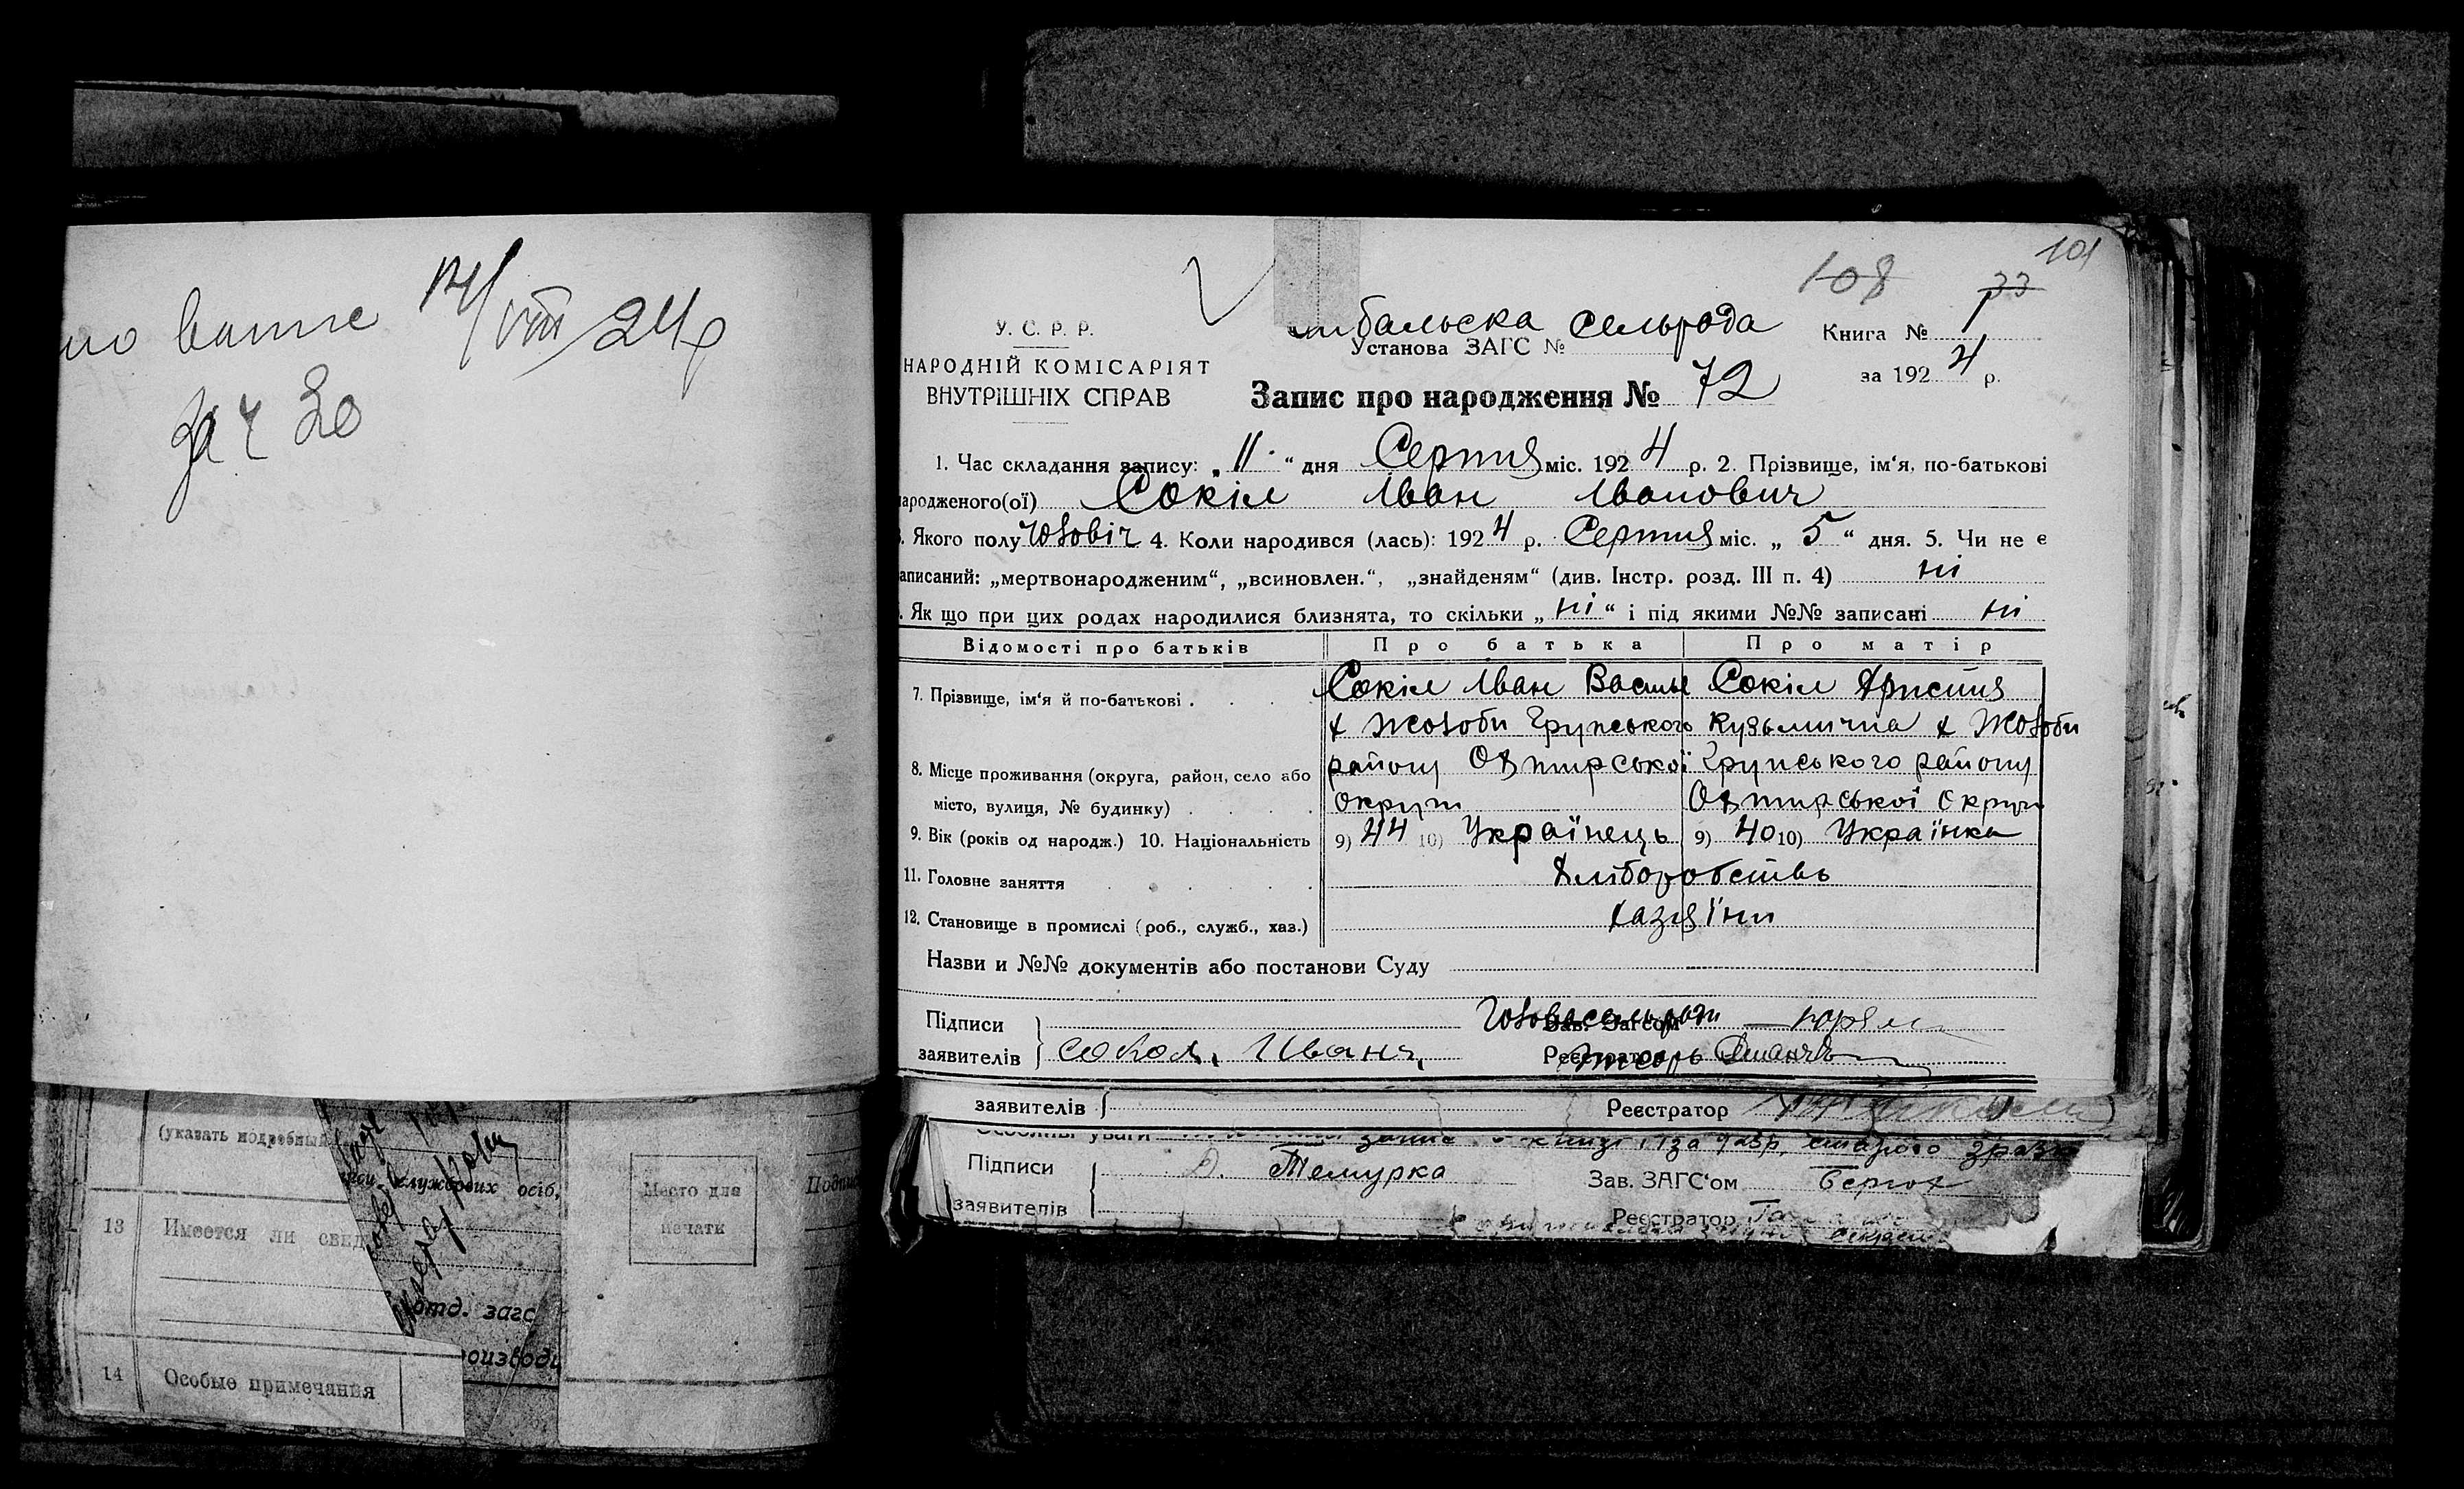 14/VIII 24р
за ч 30
101
108
33
У. С. Р. Р.
НАРОДНІЙ КОМІСАРІЯТ
ВНУТРІШНІХ СПРАВ
бальска Сельрада
Установа ЗАГС №
Книга № 1
за 1924 р.
Запис про народження № 72
1. Час складання запису: „11“ дня Серпня міс. 1924 р. 2. Прізвище, ім‘я, по-батькові
народженого(ої) Сокіл Іван Іванович
Якого полу Чоловіч 4. Коли народився (лась): 1924 р. Серпня міс. „5“ дня. 5. Чи не є
аписаний: „мертвонародженим“, „всиновлен.“, „знайденям“ (див. Інстр. розд. III п. 4) ні
Як що при цих родах народилися близнята, то скільки „ні“ і під якими №№ записані ні
Відомості про батьків Про батька Про матір
7. Прізвище, ім‘я й по-батькові . Сокіл Іван Василь Сокіл Христия
х Жолоби Грунського Кузьмична х Жолоби
8. Місце проживання (округа, район, село або району Охтирської Грунського району
місто, вулиця, № будинку) округи Охтирської округи
9. Вік (років од народж.) 10. Національність 9) 44 10) Українець 9) 40 10) Українка
11. Головне заняття Хліборобство
12. Становище в промислі (роб., служб., хаз.) хазяїни
Назви и №№ документів або постанови Суду
Підписи Голова сельради Зав. Загсом
заявителів Сокол, Иванъ, Реєстратор
заявителів Реєстратор
Особливі уваги
Підписи Д. Темурка Зав. ЗАГС‘ом
заявителів Реєстратор
(указать подробный
службових осіб,
13 Имеется ли свед
Место для
печати
отд. загс
14 Особые примечания